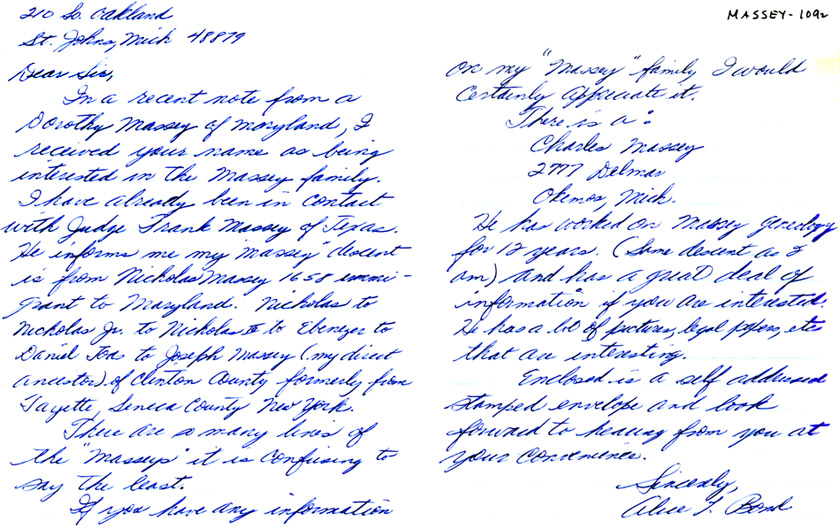 210 So. Oakland
St. Johns, Mich 48879
Dear Sir,
In a recent note from a
Dorothy Massey of Maryland, I
received your name as being
interested in the Massey family.
I have already been in contact
with Judge Frank Massey of Texas.
He informs me my "Massey" descent
is from Nicholas Massey 1658 emmi-
grant to Maryland. Nicholas to
Nicholas Jr. to Nicholas III to Ebenezer to
Daniel Fox to Joseph Massey (my direct
ancestor) of Clinton County formerly from
Fayette, Seneca County New York.
There are so many lines of
the "Masseys" it is confusing to
say the least.
If you have any information
MASSEY-1092
on my "Massey" family I would
certainly appreciate it.
There is a:
Charles Massey
2777 Delmar
Okemos, Mich.
He has worked on Massey geneology
for 12 years. (Same descent as I
am) and has a great deal of
information if you are interested.
He has a lot of pictures, legal papers, etc
that are interesting.
Enclosed is a self addressed
stamped envelope and look
forward to hearing from you at
your convenience.
Sincerely,
Alice Bond